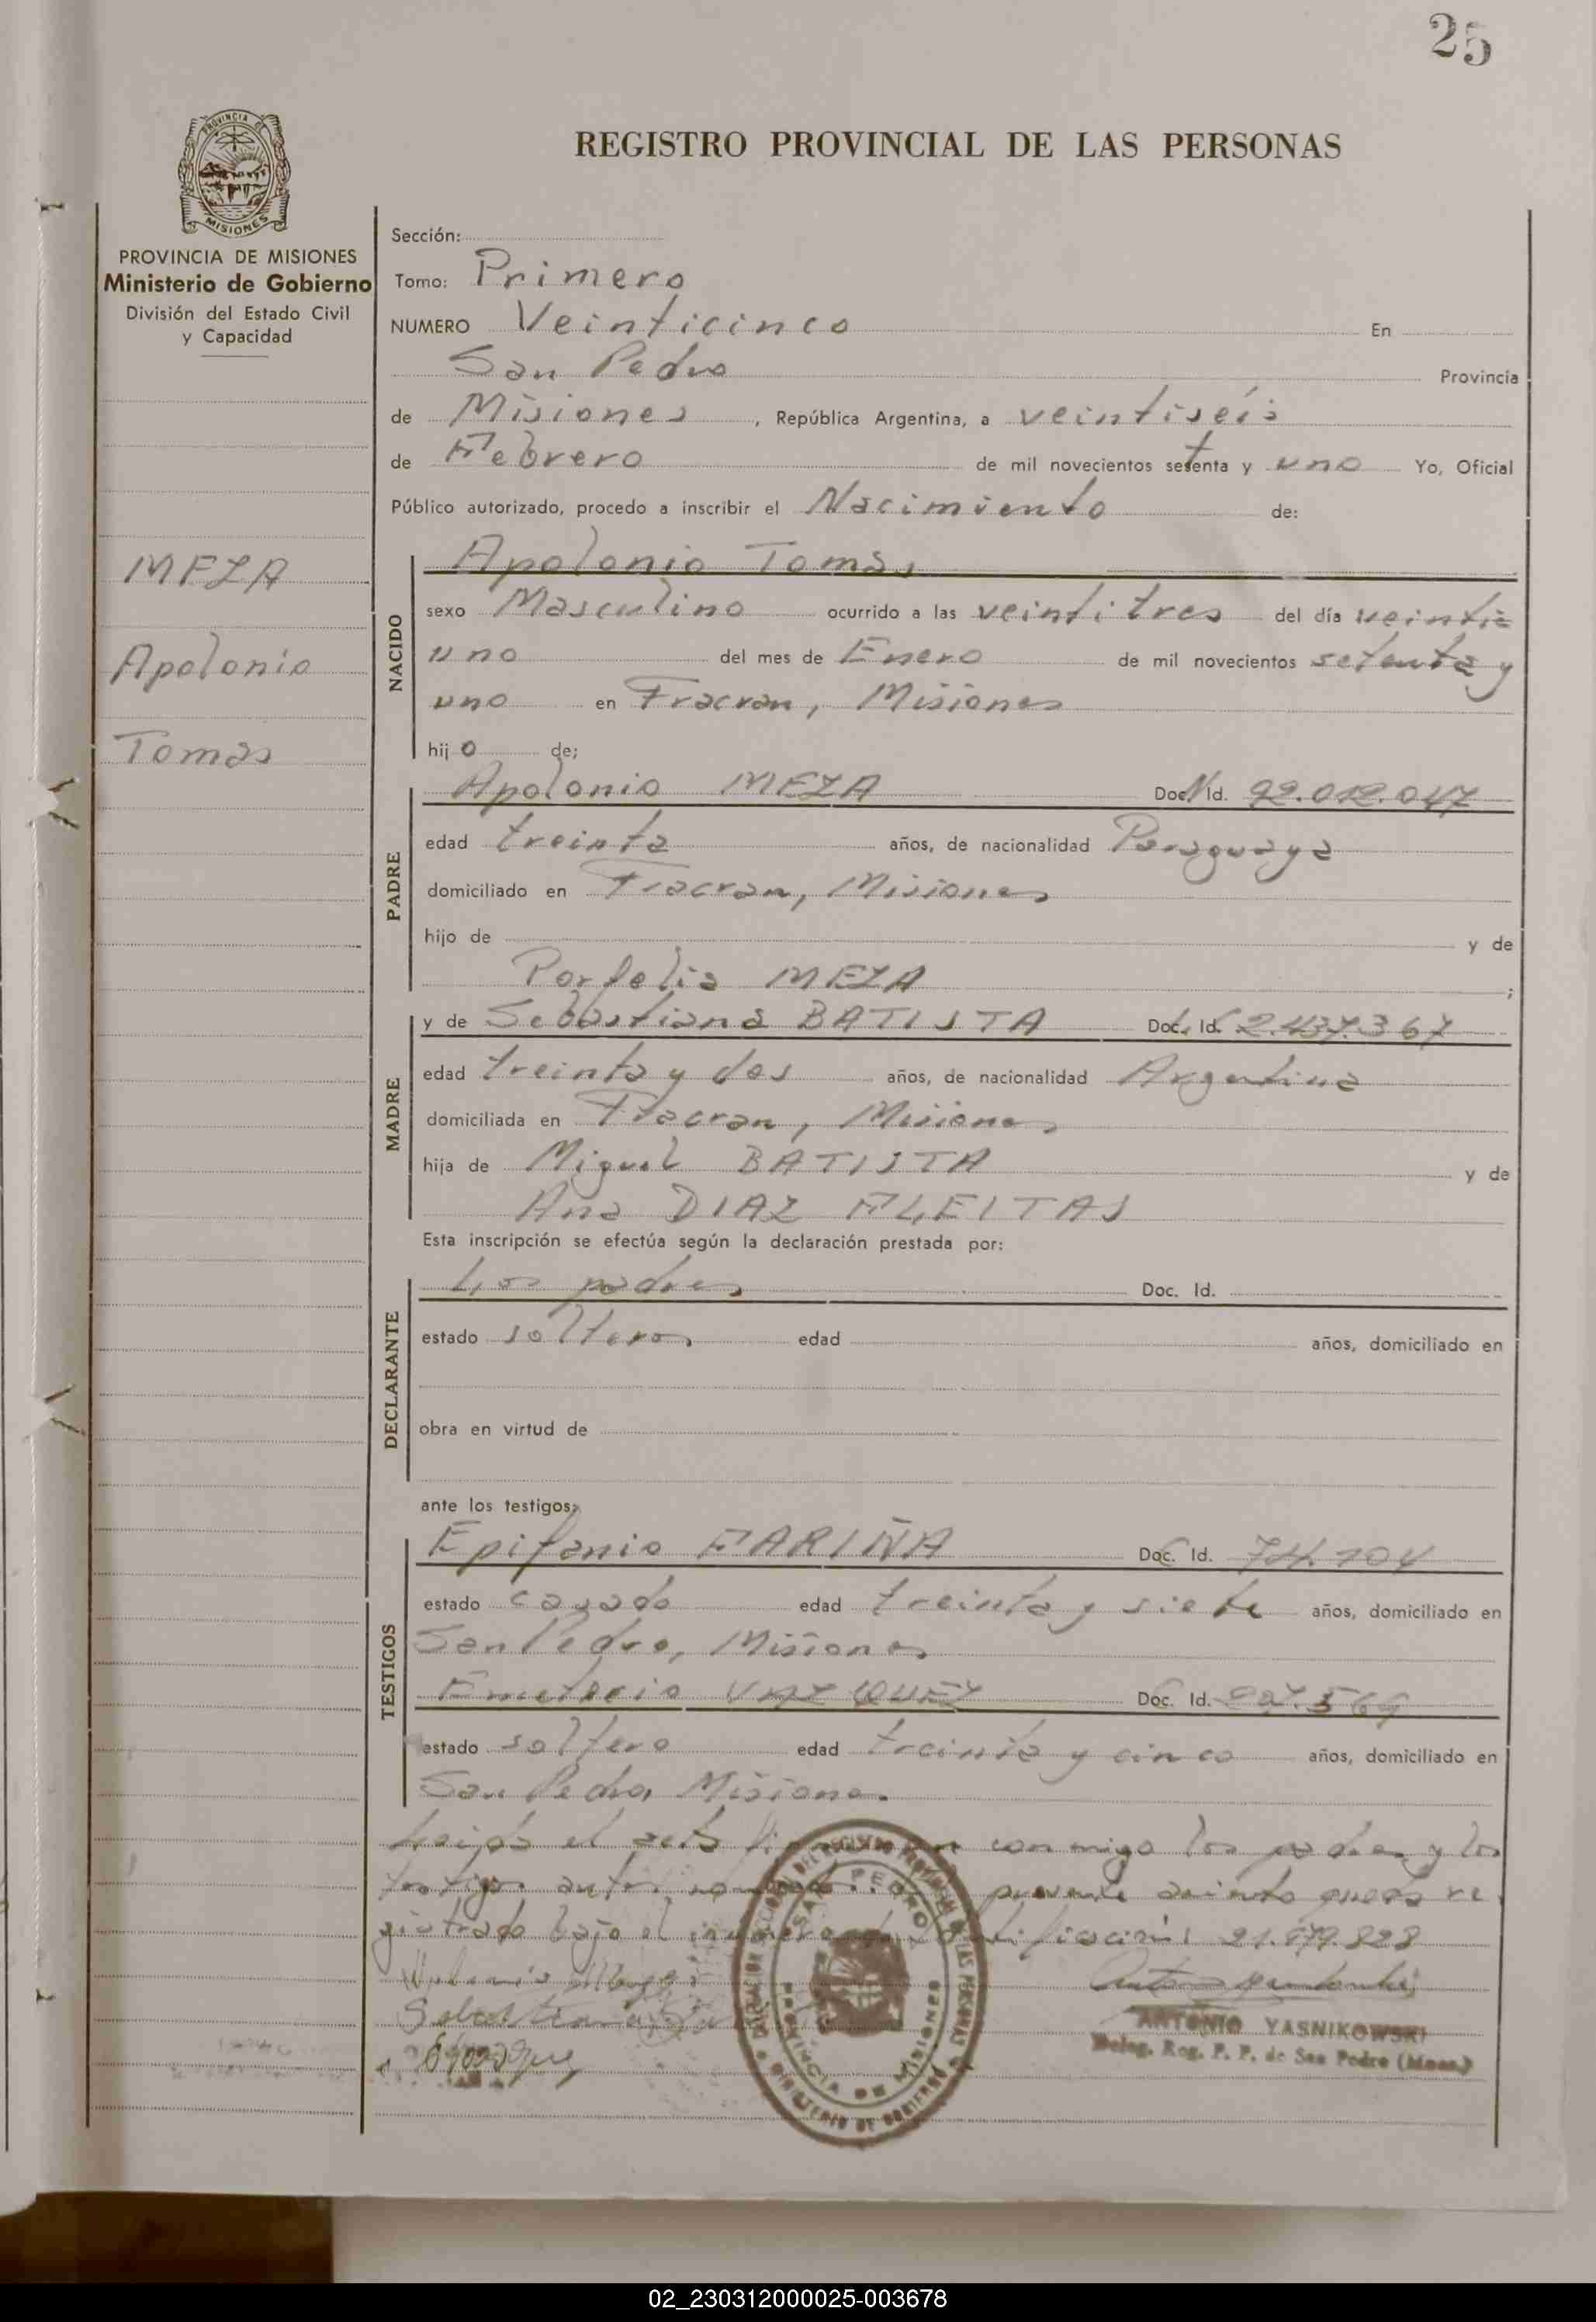 25
REGISTRO PROVINCIAL DE LAS PERSONAS
PROVINCIA DE MISIONES
Ministerio de Gobierno
División del Estado Civil
y Capacidad
MEZA
Apolonio
Tomas
Sección:
Tomo: Primero
NUMERO Veinticinco En
San Pedro Provincia
de Misiones, República Argentina, a veintiséis
de Febrero de mil novecientos setenta y uno Yo, Oficial
Público autorizado, procedo a inscribir el Nacimiento de:
NACIDO
Apolonio Tomas
sexo Masculino ocurrido a las veintitres del día veinti
uno del mes de Enero de mil novecientos setenta y
uno en Fracran, Misiones
hijo de;
PADRE
Apolonio MEZA Doc. Id. 92.012.047
edad treinta años, de nacionalidad Paraguaya
domiciliado en Fracran, Misiones
hijo de y de
Porfelia MEZA ;
MADRE
y de Sebastiana BATISTA Doc. Id. 2.437.367
edad treinta y dos años, de nacionalidad Argentina
domiciliada en Fracran, Misiones
hija de Miguel BATISTA y de
Ana DIAZ FLEITAS
Esta inscripción se efectúa según la declaración prestada por:
DECLARANTE
Los padres Doc. Id.
estado solteros edad años, domiciliado en
obra en virtud de
ante los testigos:
TESTIGOS
Epifanio FARIÑA Doc. Id. 74.104
estado casado edad treinta y siete años, domiciliado en
San Pedro, Misiones
Emeterio VAZQUEZ Doc. Id.
estado soltero edad treinta y cinco años, domiciliado en
San Pedro, Misiones.
Leida el acta conmigo los padres y los
testigos antes presente asiento queda re
gistrado bajo el
SAN PEDRO
PROVINCIA DE MISIONES
ANTONIO YASNIKOWSKI
Deleg. Reg. P. P. de San Pedro (Mnes.)
02_230312000025-003678